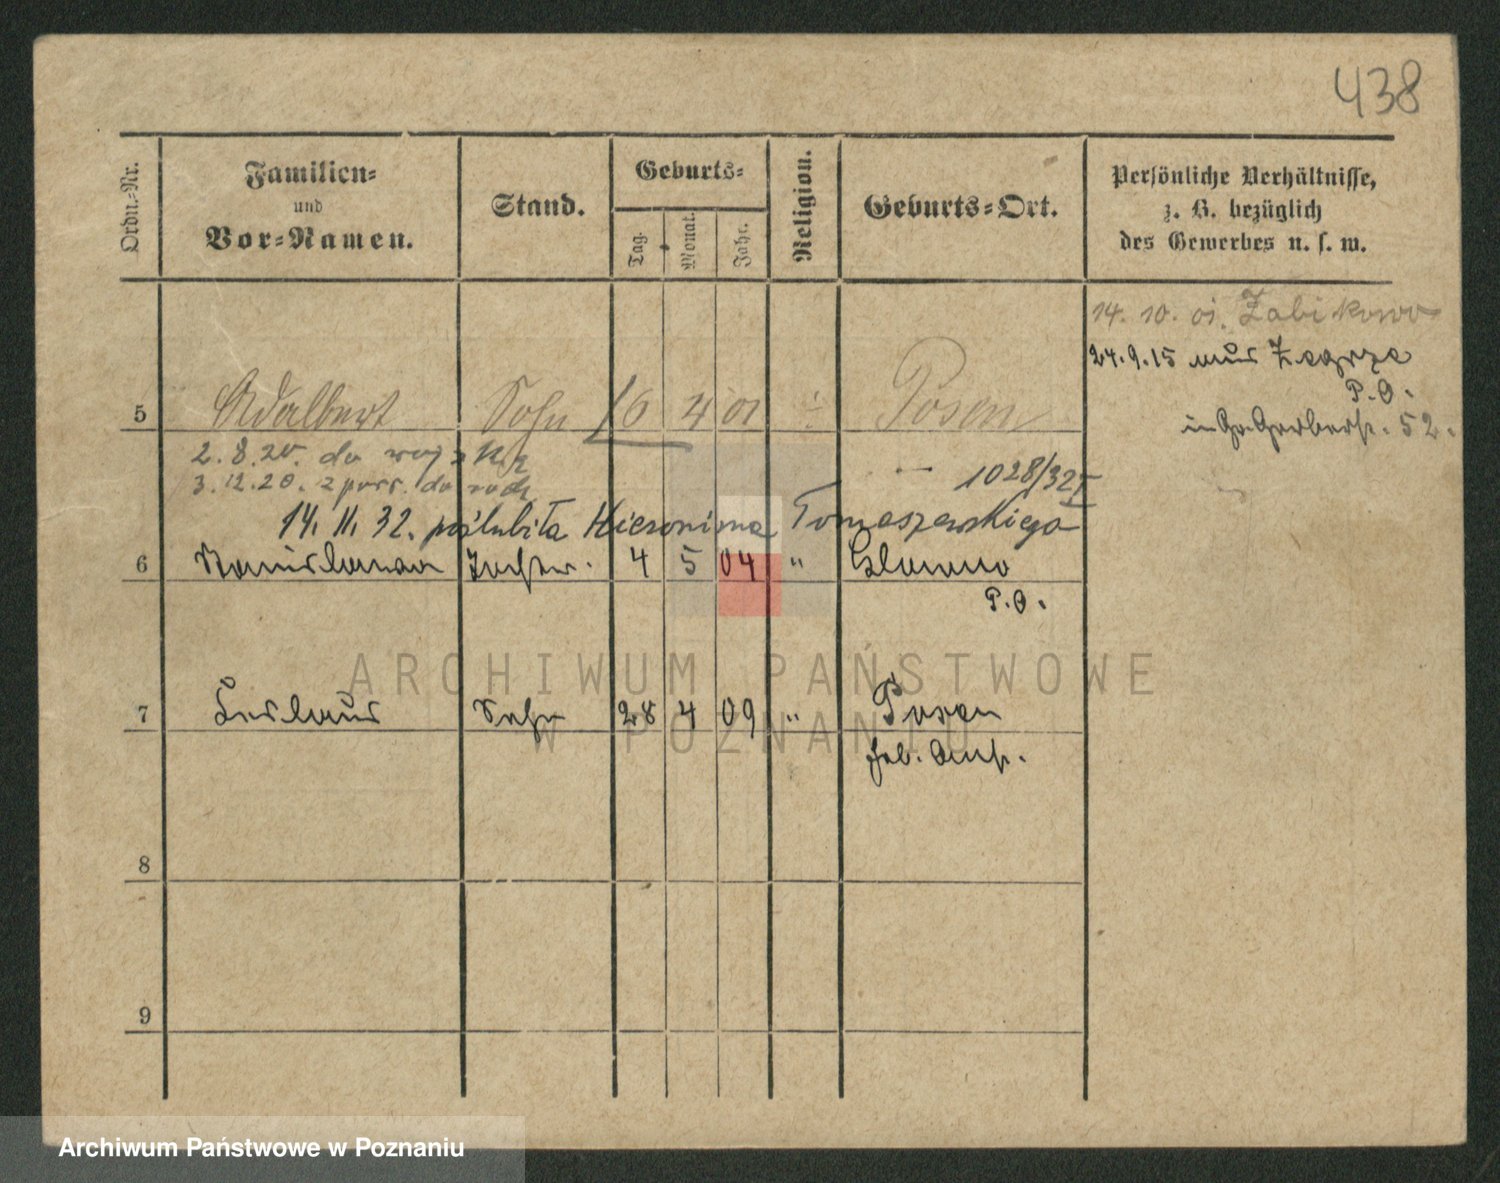 438
Ordn.-Nr.
Familien-
und
Vor-Namen.
Stand.
Geburts-
Tag.
Monat.
Jahr.
Religion.
Geburts-Ort.
Persönliche Verhältnisse,
z. B. bezüglich
des Gewerbes u. s. w.
14. 10. 01. Żabikowo
24.9.15 aus Zegrze
P.O.
in Gr. Gerberstr. 52.
5 Adalbert Sohn 16 4 01 Posen
2.8.20. do wojska
3.12.20. z do
1028/32
14. 11. 32. poślubiła Hieronima Tomaszewskiego
6 Stanislawa Tochter 4 5 04 " Glowno
P.O.
7 Leslaus Sohn 28 4 09 " Posen
8
9
ARCHIWUM PAŃSTWOWE
W POZNANIU
Archiwum Państwowe w Poznaniu